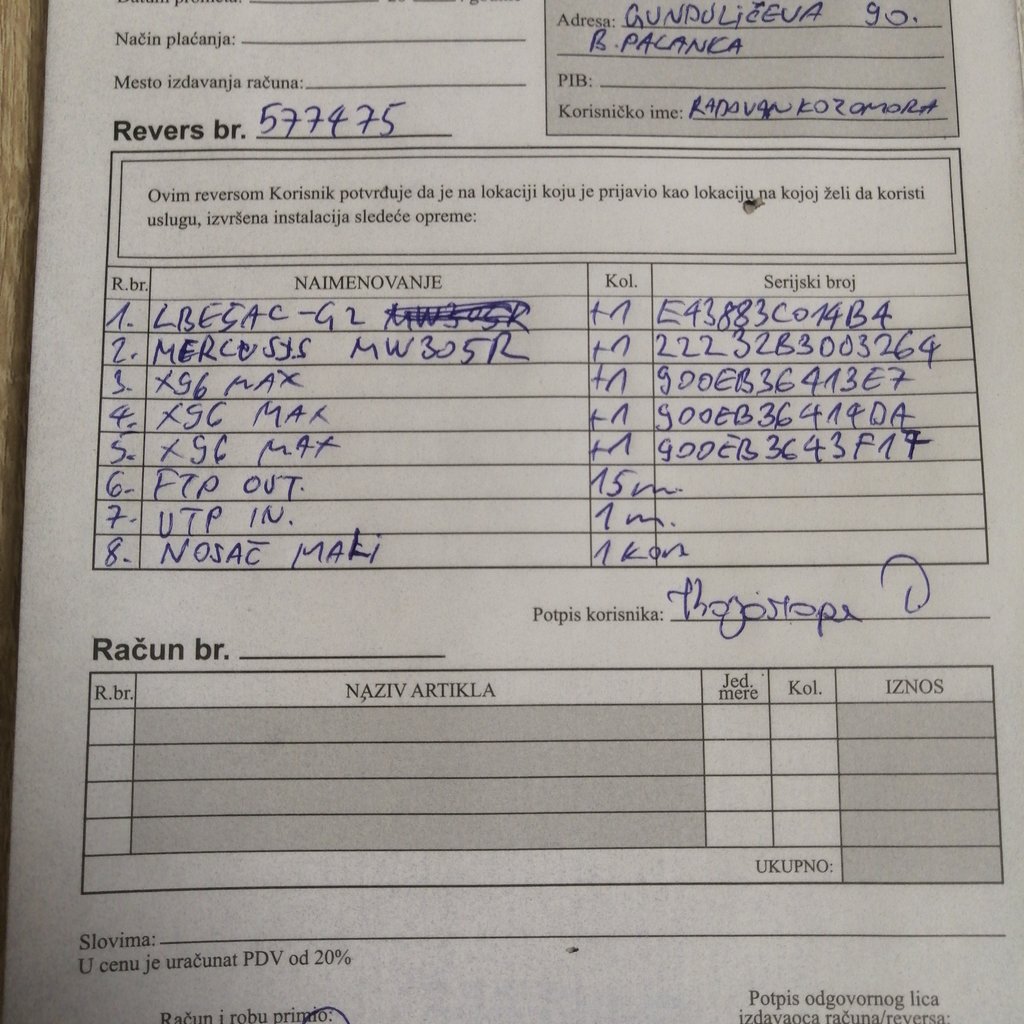 Datum prometa: 20 . godine
Način plaćanja:
Mesto izdavanja računa:
Revers br. 577475
Adresa: GUNDULIČEVA 90.
B. PALANKA
PIB:
Korisničko ime: RADOVAN KOZOMORA
Ovim reversom Korisnik potvrđuje da je na lokaciji koju je prijavio kao lokaciju na kojoj želi da koristi
uslugu, izvršena instalacija sledeće opreme:
R.br. NAIMENOVANJE Kol. Serijski broj
1. LBE5AC-G2 +1 E43883C014B4
2. MERCUSYS MW305R +1 22232B3003264
3. X96 MAX +1 900EB36413E7
4. X96 MAX +1 900EB36414DA
5. X96 MAX +1 900EB3643F17
6. FTP OUT. 15 m.
7. UTP IN. 1 m.
8. NOSAČ MALI 1 kom
Potpis korisnika:
Račun br.
R.br. NAZIV ARTIKLA Jed. mere Kol. IZNOS
UKUPNO:
Slovima:
U cenu je uračunat PDV od 20%
Račun i robu primio:
Potpis odgovornog lica
izdavaoca računa/reversa: